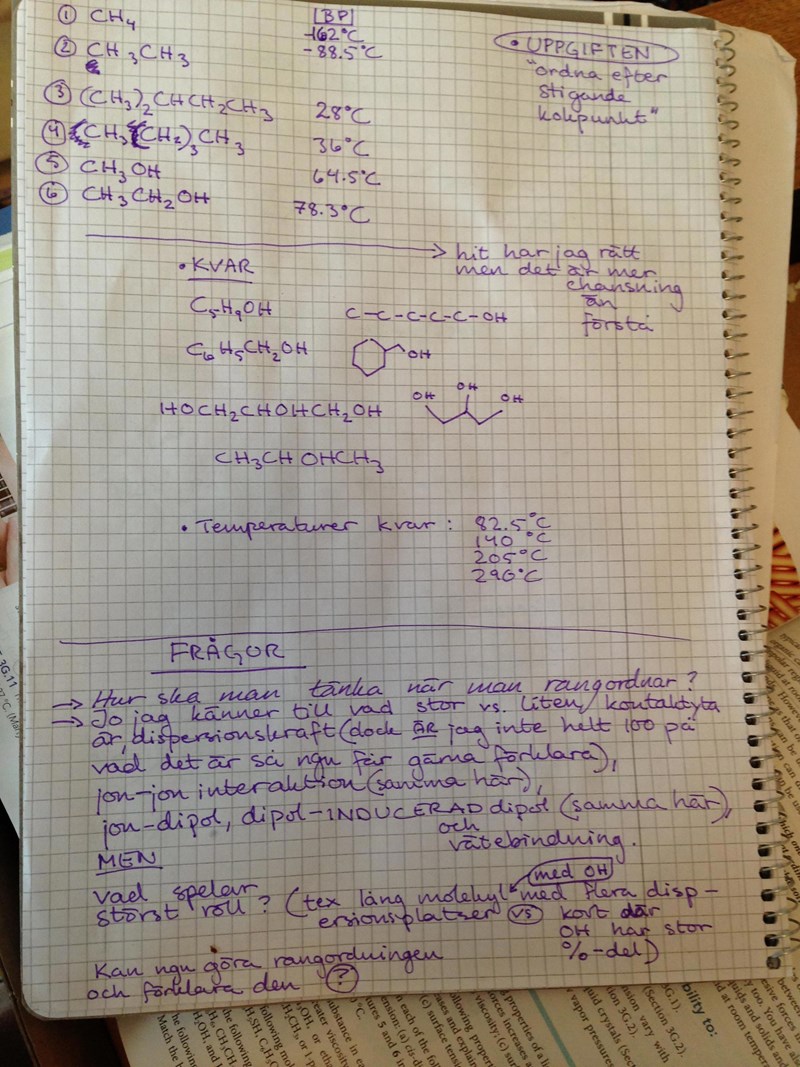 ① CH4
BP
-162°C
② CH3CH3
-88.5°C
• UPPGIFTEN
"ordna efter
stigande
kokpunkt"
③ (CH3)2CHCH2CH3 28°C
④ CH3(CH2)3CH3 36°C
⑤ CH3OH 64.5°C
⑥ CH3CH2OH 78.3°C
→ hit har jag rätt
men det är mer
chansning
än
förstå
• KVAR
C5H9OH C-C-C-C-C-OH
C6H5CH2OH OH
HOCH2CHOHCH2OH OH OH OH
CH3CHOHCH3
• Temperaturer kvar: 82.5°C
140°C
205°C
290°C
FRÅGOR
→ Hur ska man tänka när man rangordnar?
→ Jo jag känner till vad stor vs. liten kontaktyta
är, dispersionskraft (dock ÄR jag inte helt 100 på
vad det är så ngu får gärna förklara),
jon-jon interaktion (samma här),
jon-dipol, dipol-INDUCERAD dipol (samma här),
och
vätebindning.
MEN
med OH
vad spelar
störst roll? (tex lång molekyl med flera disp-
ersionsplatser vs kort där
OH har stor
%-del)
Kan ngu göra rangordningen
och förklara den ?
3G.11
bility to:
(Section 3G.1).
(Section 3G.2).